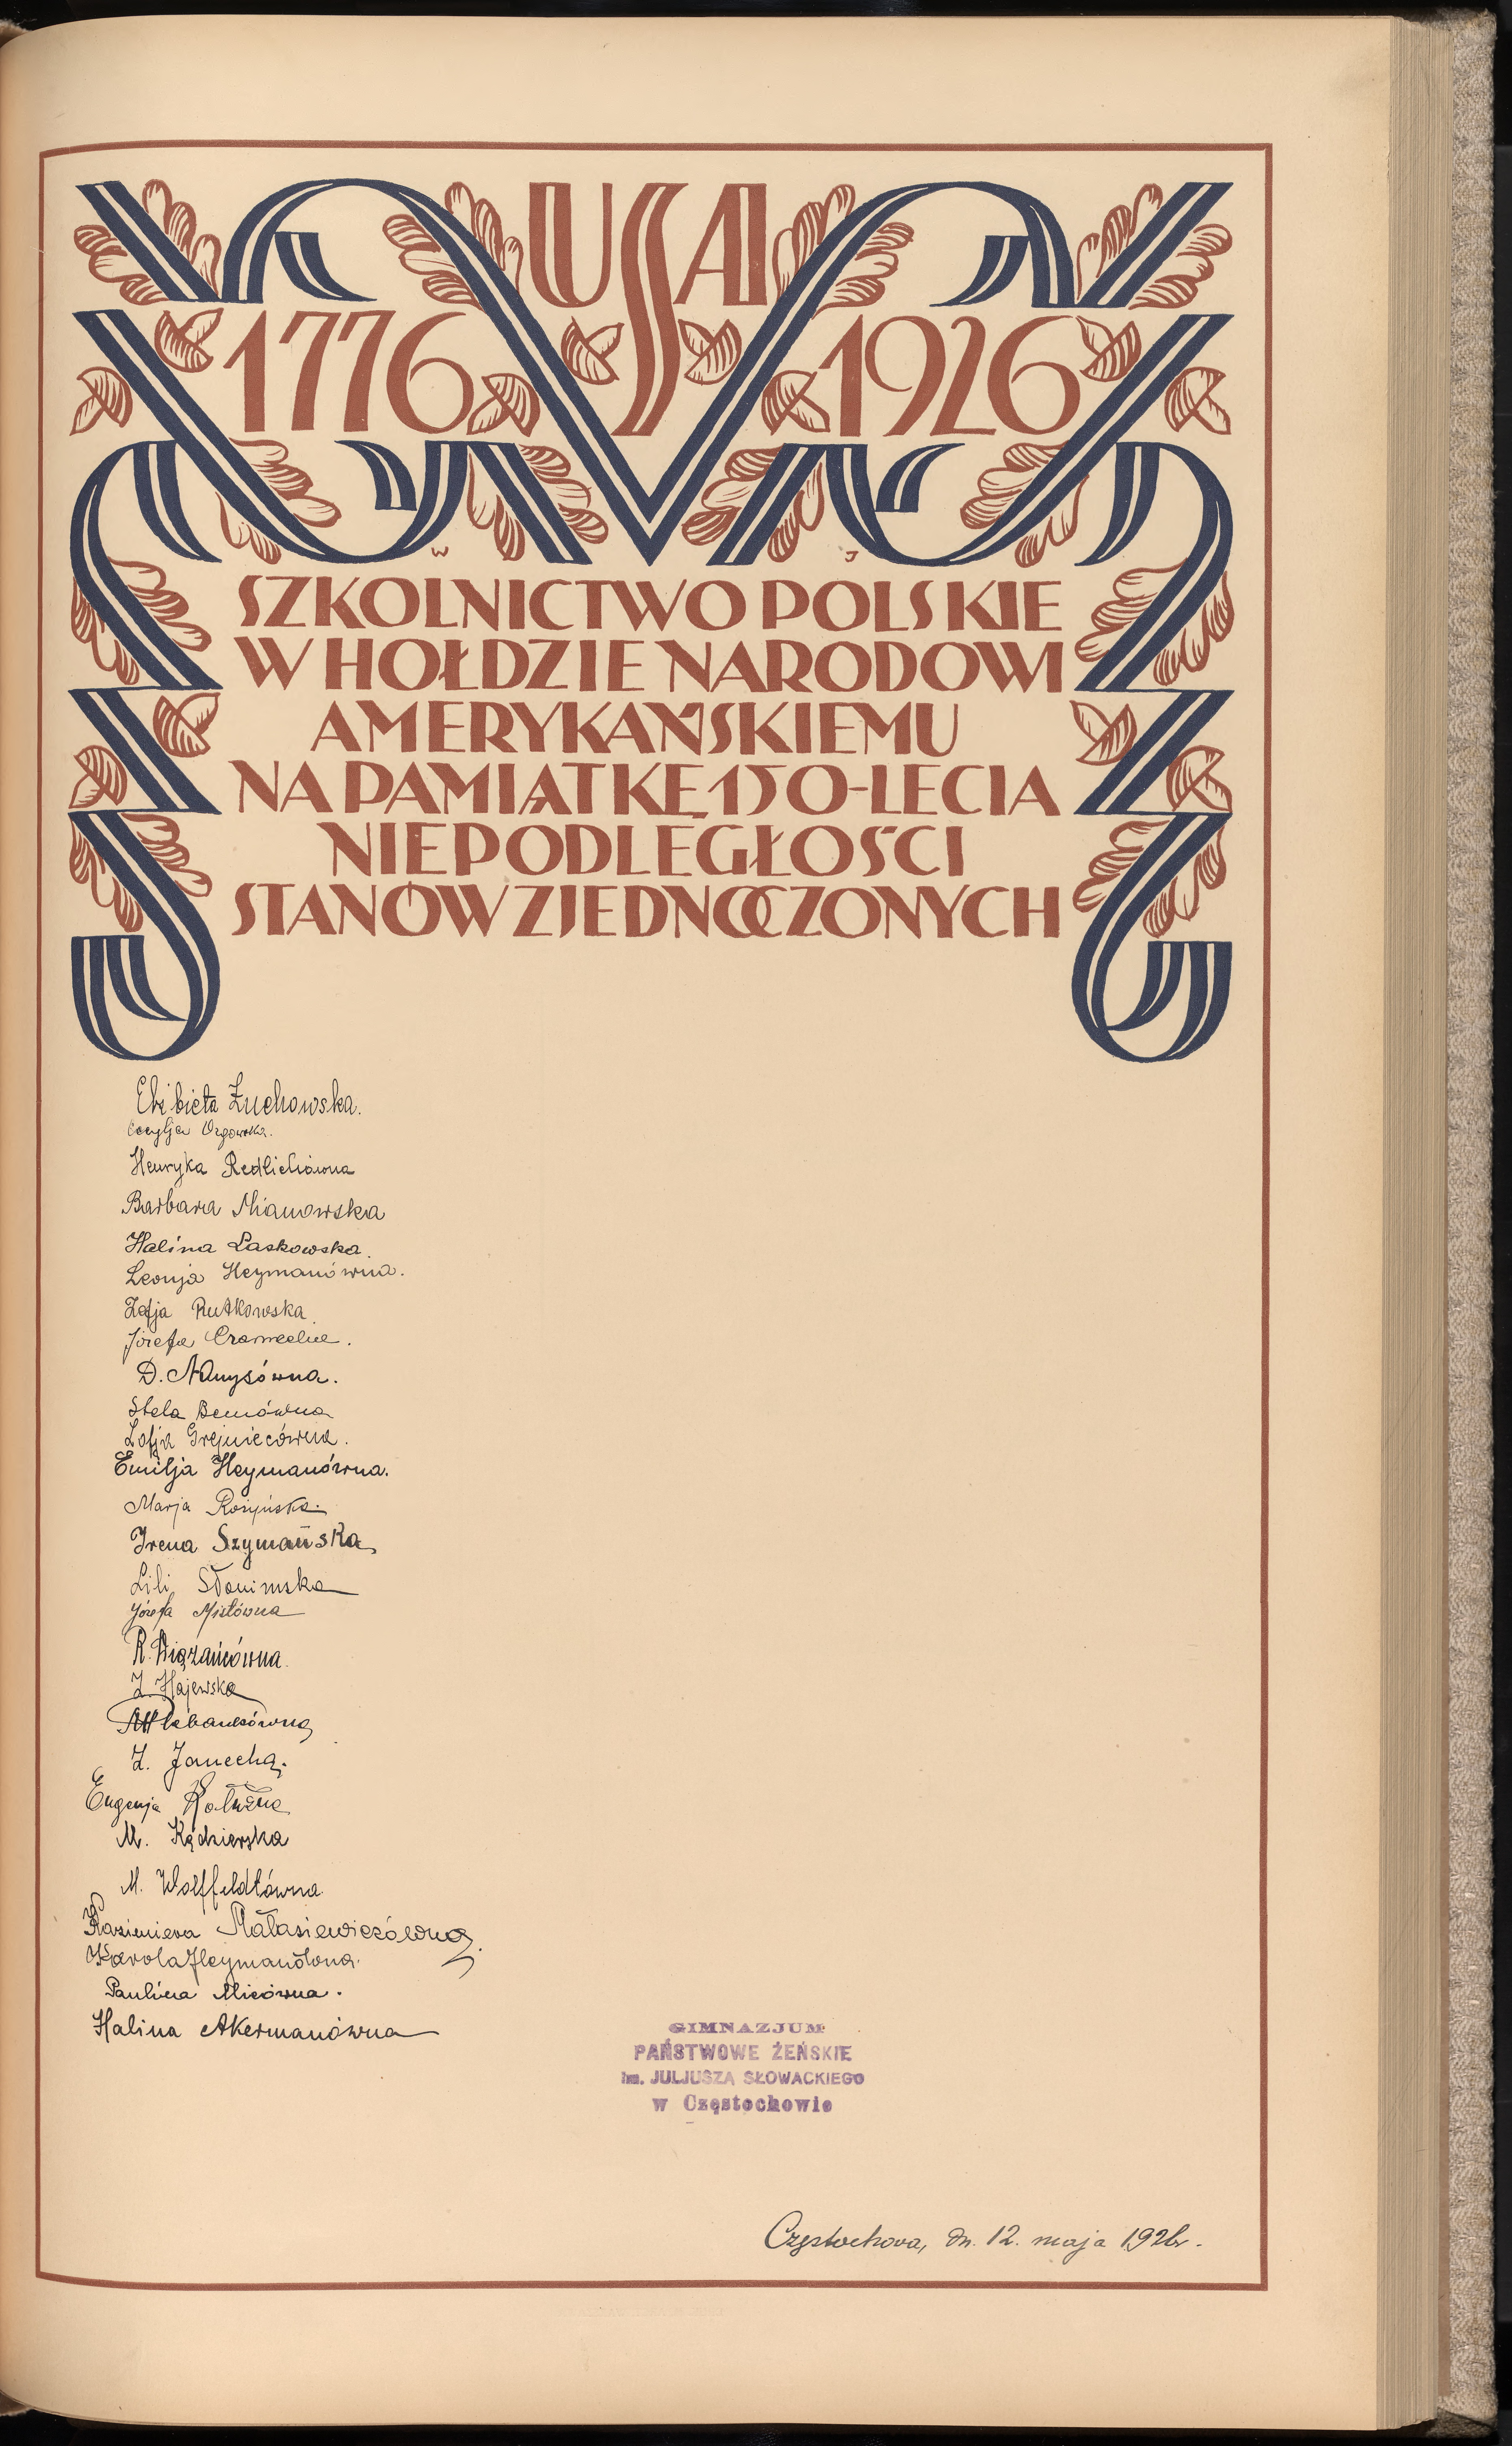 USA
1776 1926
W J
SZKOLNICTWO POLSKIE
W HOŁDZIE NARODOWI
AMERYKAŃSKIEMU
NA PAMIĄTKĘ 150-LECIA
NIEPODLEGŁOŚCI
STANÓW ZJEDNOCZONYCH
Elżbieta Żuchowska.
Cecylja
Henryka Redlichówna
Barbara Mianowska
Halina Laskowska.
Leonja Heymanówna.
Zofja Rutkowska
Józefa
D.
Stela Bemówna
Zofja Grejniecówna.
Emilja Heymanówna.
Marja Rosińska
Irena Szymańska
Lili Słonimska
Józefa Mistówna
R. Wiązańcówna.
Z. Hajewska
Z. Janecha.
Eugenja Kałużna
M. Kędzierska
M. Wolffeldtówna.
Kazimiera Małasiewiczówna.
Karola Heymanówna.
Paulina Micówna.
Halina Akermanówna
GIMNAZJUM
PAŃSTWOWE ŻEŃSKIE
im. JULJUSZA SŁOWACKIEGO
w Częstochowie
Częstochowa, dn. 12. maja 1926r.